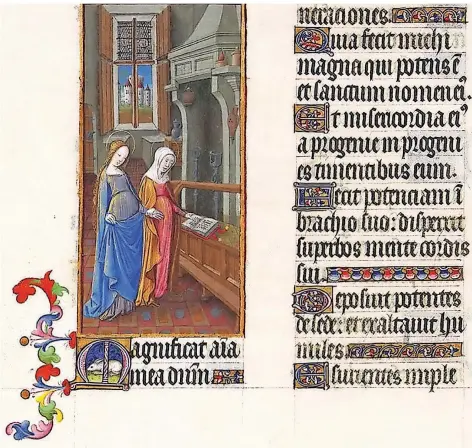 agnificat aīa
mea dn̄m
neraciones.
Quia fecit michi
magna qui potens ē
et sanctum nomen ei.
Et misericordia eiꝰ
a progenie in progeni
es timentibus eum.
Fecit potenciam ī
brachio suo: dispersit
superbos mente cordis
sui
Deposuit potentes
de sede: et exaltavit hu
miles.
Esurientes imple